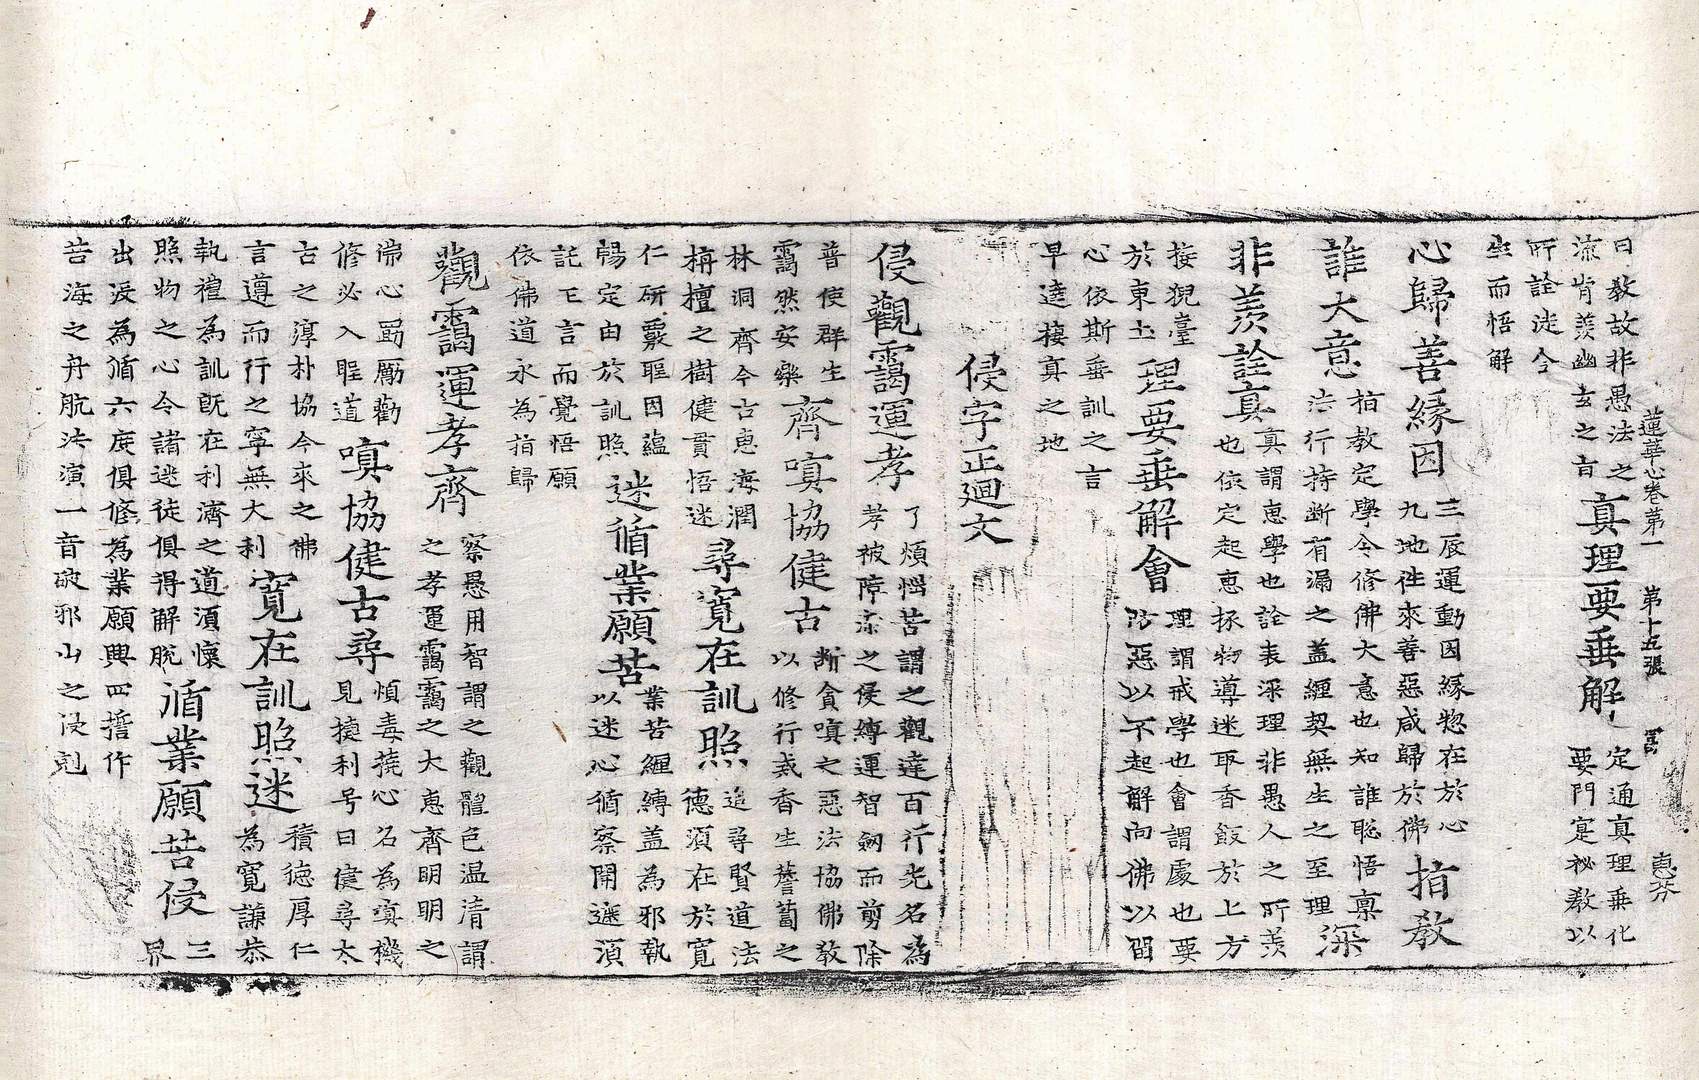 蓮華心卷第一 第十五張 惠芬
曰教故非愚法之
流肯羨幽玄之旨
真理要垂解
定通真理垂化
要門寔秘教以
所詮淺令
生而悟解
心歸善緣因
三辰運動因緣惣在於心
九地徃來善惡咸歸於佛
指教
誰大意
指教定學令修佛大意也知誰聡悟禀
法行持斷有漏之蓋纒契無生之至理
深
非羨詮真
真謂惠學也詮表深理非愚人之所羨
也依定起惠拯物導迷取香飯於上方
接猊臺
於東土
理要垂解會
理謂戒學也會謂處也要
防惡以不起解向佛以留
心依斯垂訓之言
早達棲真之地
侵字正廻文
侵觀靄運孝
了煩惱苦謂之觀達百行先名為
孝被障深之侵縛運智劒而剪除
普使群生
靄然安樂
齊嗔協健古
斷貪嗔之惡法協佛教
以修行爇香生薝蔔之
林洞齊今古惠海潤
栴檀之樹健賁悟迷
尋寬在訓照
追尋賢道法
德湏在於寬
仁研覈聖因藴
暢定由於訓照
迷循業願苦
業苦纒縛蓋為邪執
以迷心循察開遮湏
託亡言而覺悟願
依佛道永為指歸
觀靄運孝齊
察懸用智謂之觀體色温清謂
之孝運靄靄之大惠齊明明之
常心勗勵勸
修必入聖道
嗔協健古尋
煩毒撓心名為嗔機
見捷利号曰健尋太
古之淳朴協今來之佛
言遵而行之寧無大利
寬在訓照迷
積德厚仁
為寬謙恭
執禮為訓旣在利濟之道湏懷
照物之心令諸迷徒俱得解脫
循業願苦侵
三
界
出没為循六度俱修為業願興四誓作
苦海之舟航法演一音破邪山之侵剋